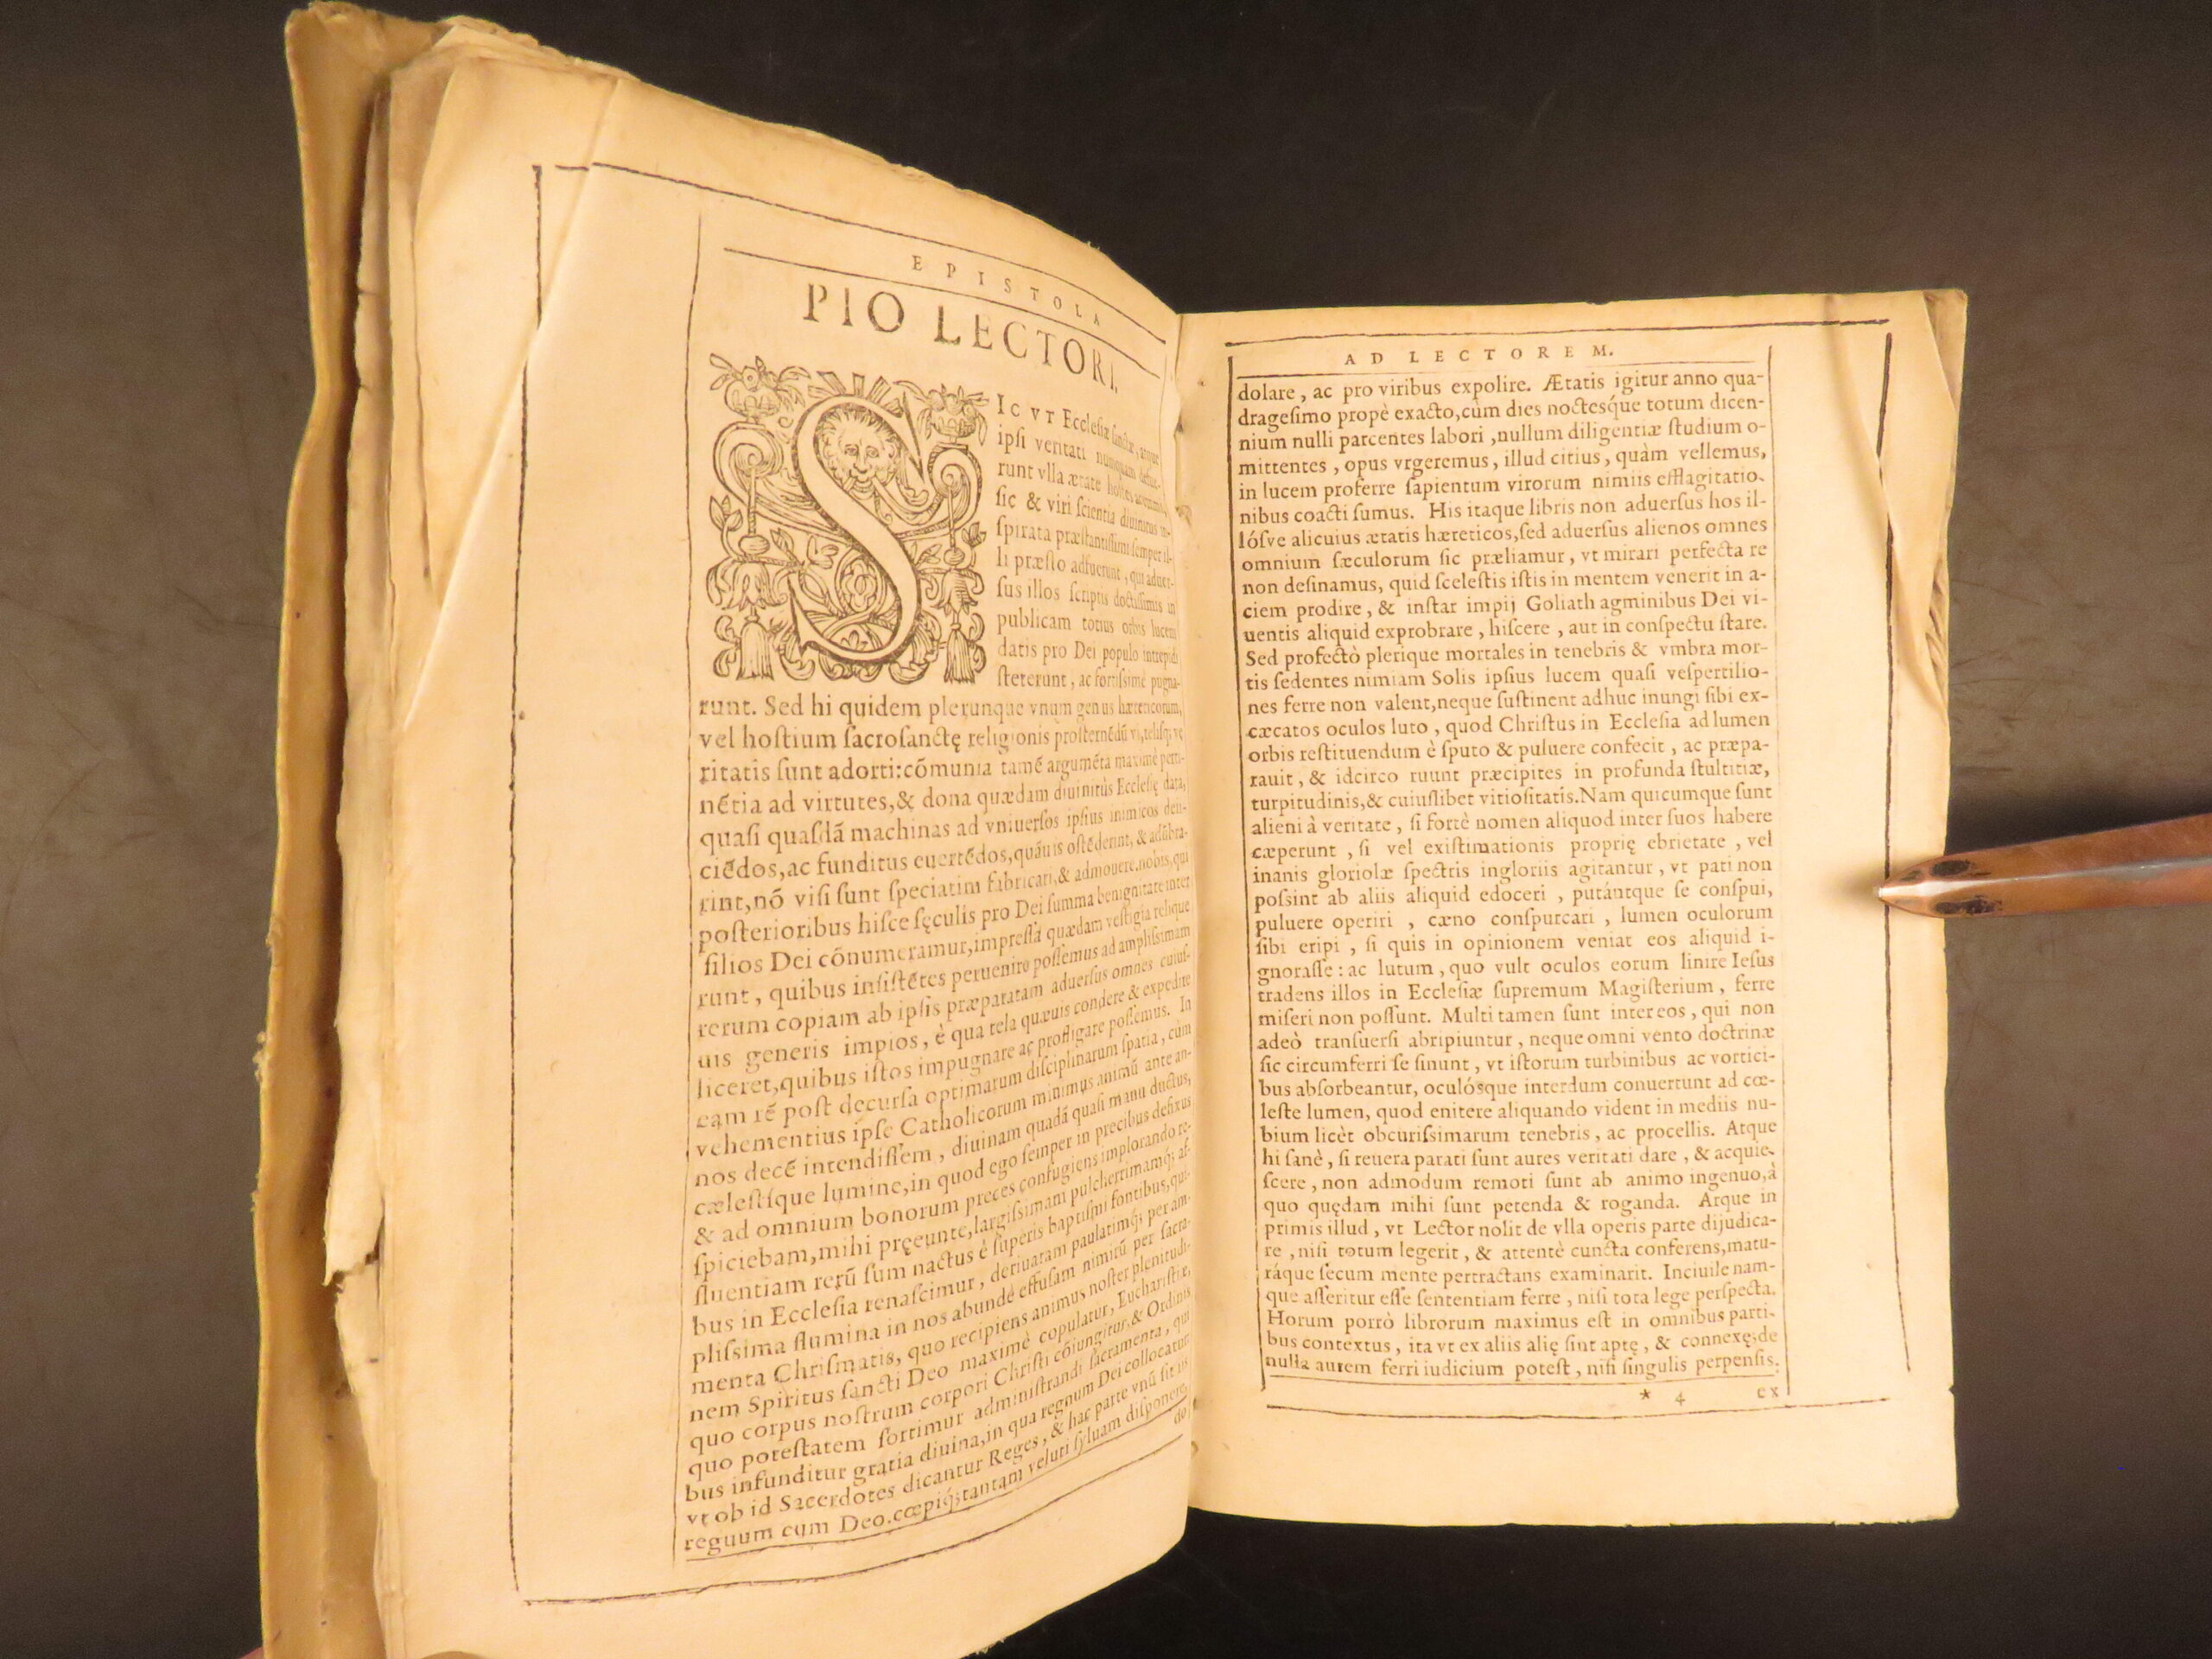 EPISTOLA
PIO LECTORI.
SICVT Ecclesiæ sanctæ, atque
ipsi veritati nunquam defue-
runt vlla ætate hostes
sic & viri scientia diuinitus in-
spirata præstantissimi semper il-
li præsto adfuerunt, qui aduer-
sus illos scriptis doctissimis in
publicam totius orbis lucem
datis pro Dei populo intrepidi
steterunt, ac fortissimè pugna-
runt. Sed hi quidem plerunque vnum genus hæreticorum,
vel hostium sacrosanctę religionis prosternēdū vi, telisq; ve
ritatis sunt adorti: cōmunia tamē argumēta maximè perti-
nētia ad virtutes, & dona quædam diuinitùs Ecclesię data,
quasi quasdā machinas ad vniuersos ipsius inimicos deii-
ciēdos, ac funditus euertēdos, quāuis ostēderint, & adūbra-
rint, nō visi sunt speciatim fabricari, & admouere. nobis, qui
posterioribus hisce sęculis pro Dei summa benignitate inter
filios Dei cōnumeramur, impressa quædam vestigia relique
runt, quibus insistētes peruenire possemus ad amplissimam
rerum copiam ab ipsis præparatam aduersus omnes cuius-
uis generis impios, è qua tela quæuis condere & expedire
liceret, quibus istos impugnare ac profligare possemus. In
eam rē post decursa optimarum disciplinarum spatia, cùm
vehementius ipse Catholicorum minimus animū ante an-
nos decē intendissem, diuinam quadā quasi manu ductus,
cælestíque lumine, in quod ego semper in precibus defixus
& ad omnium bonorum preces confugiens implorando re-
spiciebam, mihi pręeunte, largissimam pulcherrimamq; af-
fluentiam rerū sum nactus è superis baptismi fontibus, qui-
bus in Ecclesia renascimur, deriuatam paulatimq; per am-
plissima flumina in nos abundè effusam nimirū per sacra-
menta Chrismatis, quo recipiens animus noster plenitudi-
nem Spiritus sancti Deo maximè copulatur, Eucharistiæ,
quo corpus nostrum corpori Christi cōiungitur, & Ordinis
quo potestatem sortimur administrandi sacramenta, qui
bus infunditur gratia diuina, in qua regnum Dei collocatur
vt ob id Sacerdotes dicantur Reges, & hac parte vnū sit iis
regnum cum Deo. cœpiq; tantam veluti syluam disponere,
do
AD LECTOREM.
dolare, ac pro viribus expolire. Ætatis igitur anno qua-
dragesimo propè exacto, cùm dies noctésque totum dicen-
nium nulli parcentes labori, nullum diligentiæ studium o-
mittentes, opus vrgeremus, illud citius, quàm vellemus,
in lucem proferre sapientum virorum nimiis efflagitatio-
nibus coacti sumus. His itaque libris non aduersus hos il-
lósve alicuius ætatis hæreticos, sed aduersus alienos omnes
omnium sæculorum sic præliamur, vt mirari perfecta re
non desinamus, quid scelestis istis in mentem venerit in a-
ciem prodire, & instar impij Goliath agminibus Dei vi-
uentis aliquid exprobrare, hiscere, aut in conspectu stare.
Sed profectò plerique mortales in tenebris & vmbra mor-
tis sedentes nimiam Solis ipsius lucem quasi vespertilio-
nes ferre non valent, neque sustinent adhuc inungi sibi ex-
cæcatos oculos luto, quod Christus in Ecclesia ad lumen
orbis restituendum è sputo & puluere confecit, ac præpa-
rauit, & idcirco ruunt præcipites in profunda stultitiæ,
turpitudinis, & cuiuslibet vitiositatis. Nam quicumque sunt
alieni à veritate, si fortè nomen aliquod inter suos habere
cæperunt, si vel existimationis proprię ebrietate, vel
inanis gloriolæ spectris ingloriis agitantur, vt pati non
possint ab aliis aliquid edoceri, putántque se conspui,
puluere operiri, cæno conspurcari, lumen oculorum
sibi eripi, si quis in opinionem veniat eos aliquid i-
gnorasse: ac lutum, quo vult oculos eorum linire Iesus
tradens illos in Ecclesiæ supremum Magisterium, ferre
miseri non possunt. Multi tamen sunt inter eos, qui non
adeò transuersi abripiuntur, neque omni vento doctrinæ
sic circumferri se sinunt, vt istorum turbinibus ac vortici-
bus absorbeantur, oculósque interdum conuertunt ad cœ-
leste lumen, quod enitere aliquando vident in mediis nu-
bium licèt obcurissimarum tenebris, ac procellis. Atque
hi sanè, si reuera parati sunt aures veritati dare, & acquie-
scere, non admodum remoti sunt ab animo ingenuo, à
quo quędam mihi sunt petenda & roganda. Atque in
primis illud, vt Lector nolit de vlla operis parte dijudica-
re, nisi totum legerit, & attentè cuncta conferens, matu-
ráque secum mente pertractans examinarit. Inciuile nam-
que asseritur esse sententiam ferre, nisi tota lege perspecta.
Horum porrò librorum maximus est in omnibus parti-
bus contextus, ita vt ex aliis alię sint aptę, & connexę; de
nulla autem ferri iudicium potest, nisi singulis perpensis.
* 4 ex